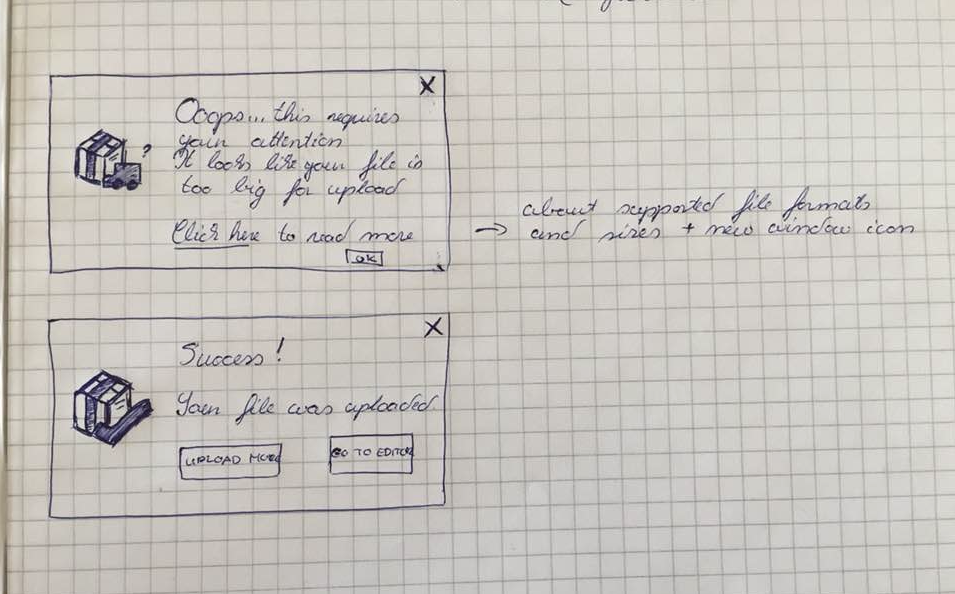 X
Ooops... this requires
your attention
?
It looks like your file is
too big for upload
Click here to read more
OK
→ about supported file formats
and sizes + new window icon
X
Success!
Your file was uploaded
UPLOAD MORE
GO TO EDITOR